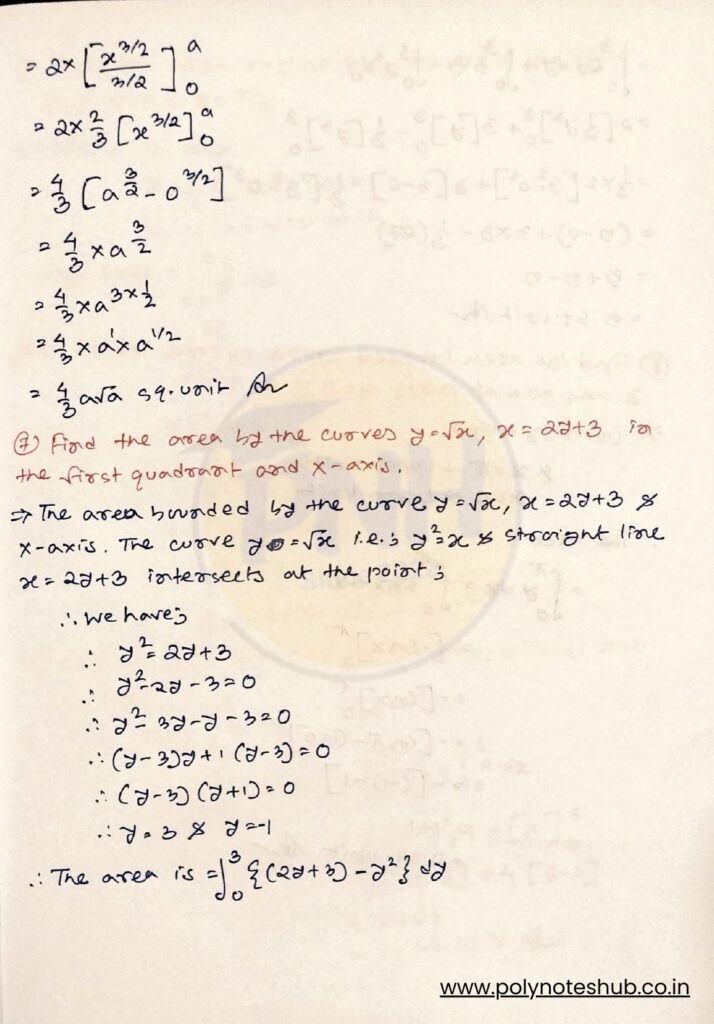 = 2x [x^3/2 / 3/2]_0^a
= 2x 2/3 [x^3/2]_0^a
= 4/3 [a^3/2 - 0^3/2]
= 4/3 x a^3/2
= 4/3 x a^3x1/2
= 4/3 x a^1 x a^1/2
= 4/3 a√a sq. unit
⑦ Find the area by the curves y=√x, x = 2y+3 in
the first quadrant and x-axis.
⇒ The area bounded by the curve y=√x, x = 2y+3 &
x-axis. The curve y = √x i.e.; y²=x & straight line
x = 2y+3 intersects at the point;
∴ we have;
∴ y² = 2y+3
∴ y²-2y-3=0
∴ y²- 3y-y-3=0
∴ (y-3)y+1(y-3)=0
∴ (y-3)(y+1)=0
∴ y=3 & y=-1
∴ The area is = ∫_0^3 {(2y+3) - y²} dy
www.polynoteshub.co.in